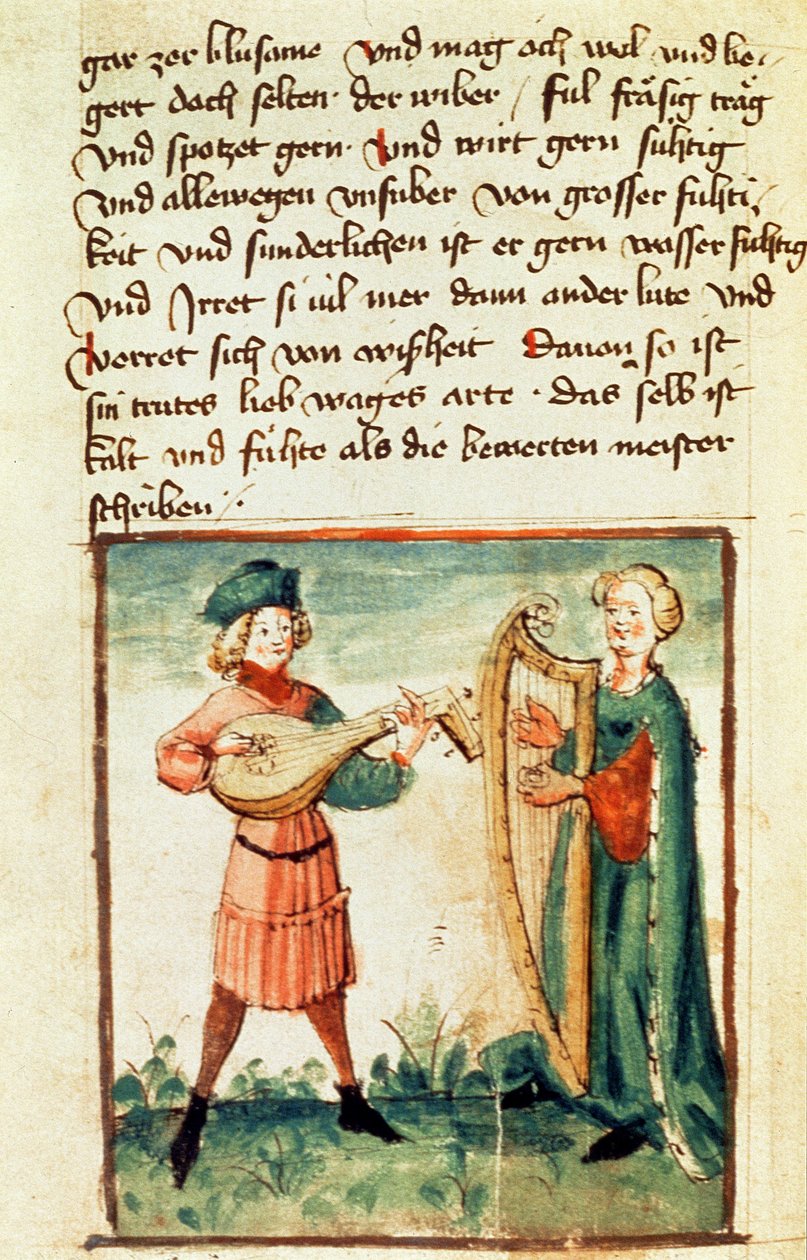 gar zer blusame vnd mag och wol vnd be-
gert doch selten der wiber / ful fräsig träg
vnd spotzet gern vnd wirt gern sühtig
vnd allewegen vnsuber von grosser fühti-
keit vnd sunderlichen ist er gern wassersühtig
vnd Irret si vil mer dann ander lute vnd
verret sich von wißheit Dauon so ist
sin trutes lieb wages arte · das selb ist
kalt vnd fühte als die bewerten meister
schriben /.